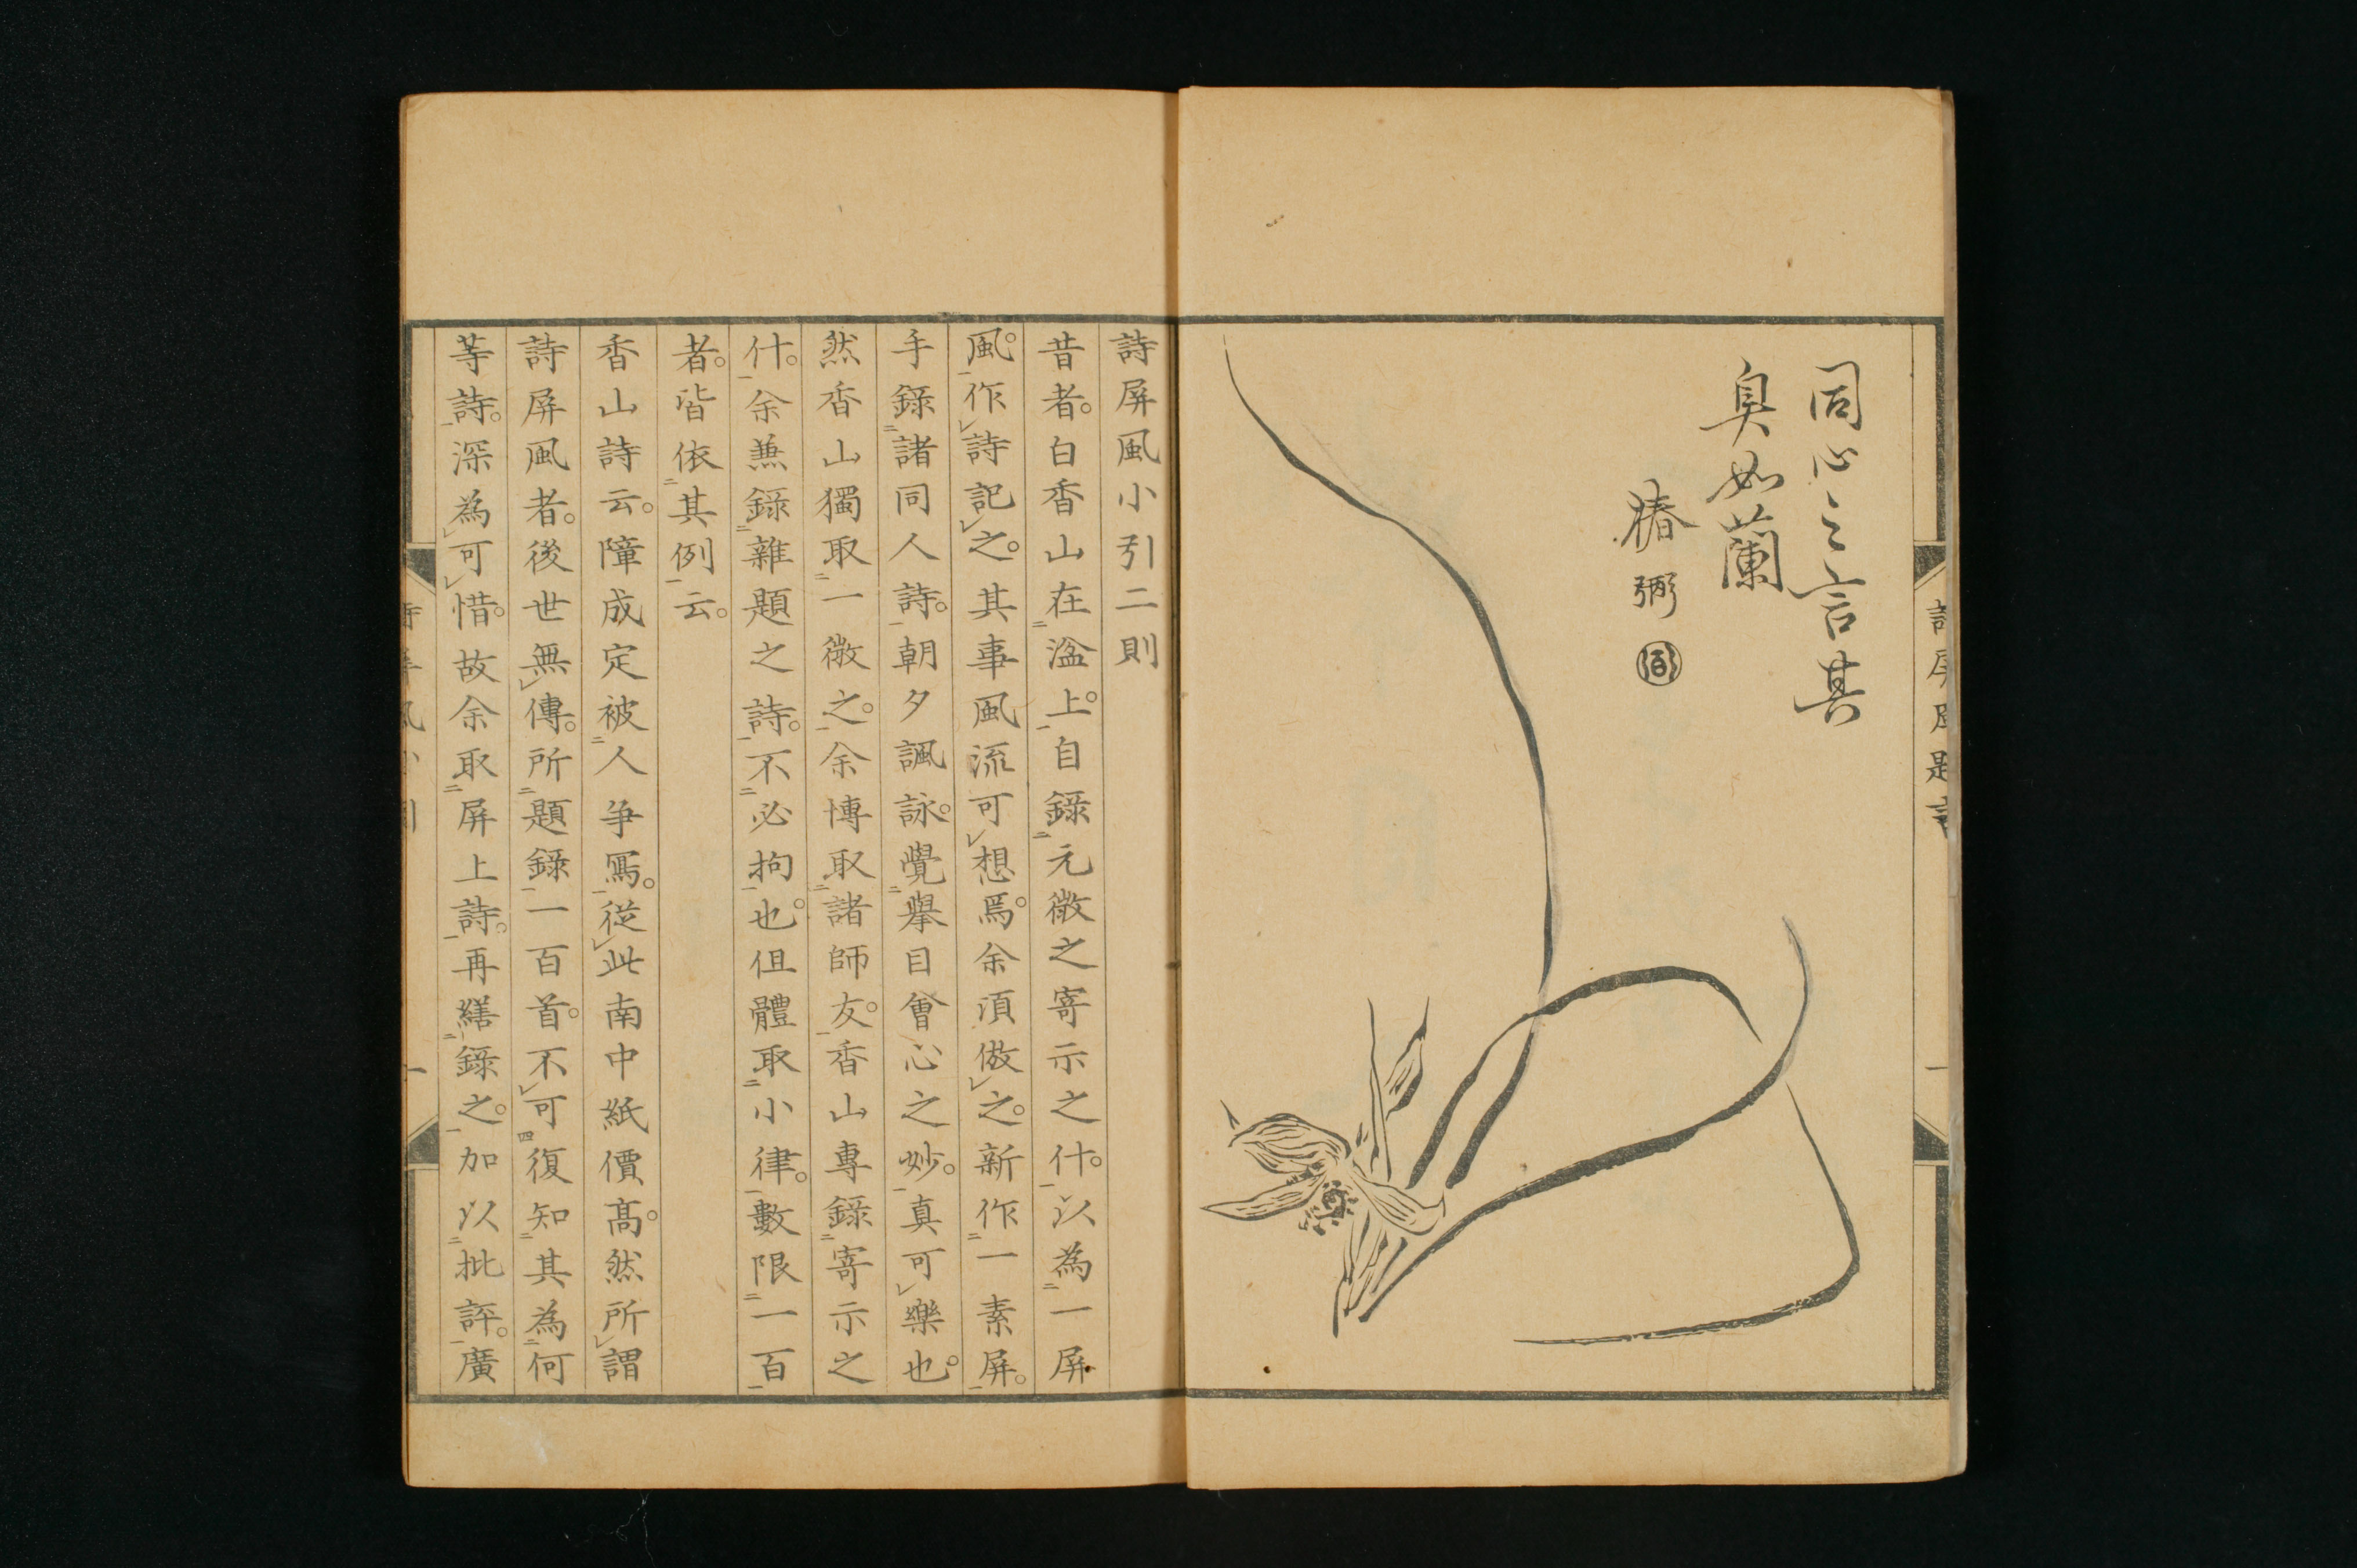 同心之言其
臭如蘭
椿弼
詩屏風小引二則
昔者。白香山在湓上。自錄元微之寄示之什。以為一屏
風。作詩記之。其事風流可想焉。余須倣之。新作一素屏。
手錄諸同人詩。朝夕諷詠。覺擧目會心之妙。真可樂也。
然香山獨取一微之。余博取諸師友。香山專錄寄示之
什。余兼錄雜題之詩。不必拘也。但體取小律。數限一百
者。皆依其例云。
香山詩云。障成定被人爭寫。從此南中紙價高。然所謂
詩屏風者。後世無傳。所題錄一百首。不可復知其為何
等詩。深為可惜。故余取屏上詩。再繕錄之。加以批評。廣